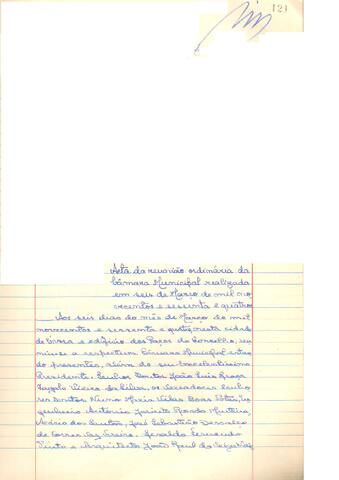 121
Acta da reunião ordinária da
Câmara Municipal realizada
em seis de Março de mil no
vecentos e sessenta e quatro
Aos seis dias do mês de Março de mil
novecentos e sessenta e quatro, nesta cidade
de Évora e edifício dos Paços do Concelho, reu
niu-se a respectiva Câmara Municipal estan
do presentes, além do seu Excelentíssimo
Presidente, Senhor Doutor João Luís
Vieira da Silva, os Vereadores Senho
res Doutor Nuno Maria Vilas Boas Potes,
António Jacinto
dos Santos, José Sebastião
de Torres Vaz Freire, Geraldo Fernando
Pinto e Arquitecto João Raul